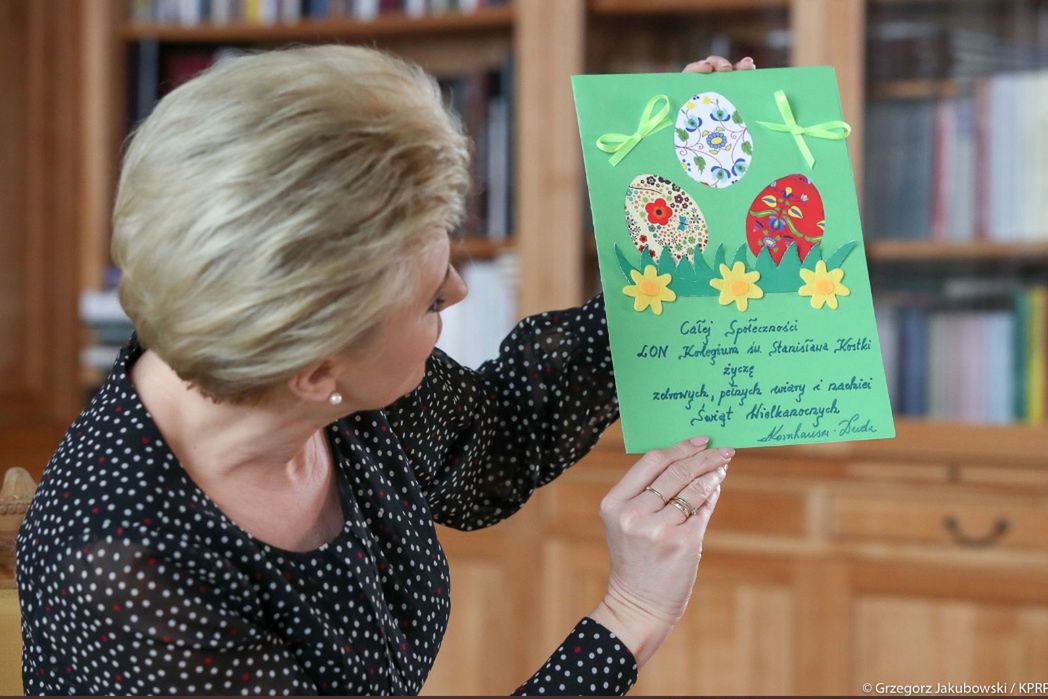 Całej Społeczności
LON Kolegium św. Stanisława Kostki
życzę
zdrowych, pełnych wiary i nadziei
Świąt Wielkanocnych
AKornhauser-Duda
© Grzegorz Jakubowski / KPRP